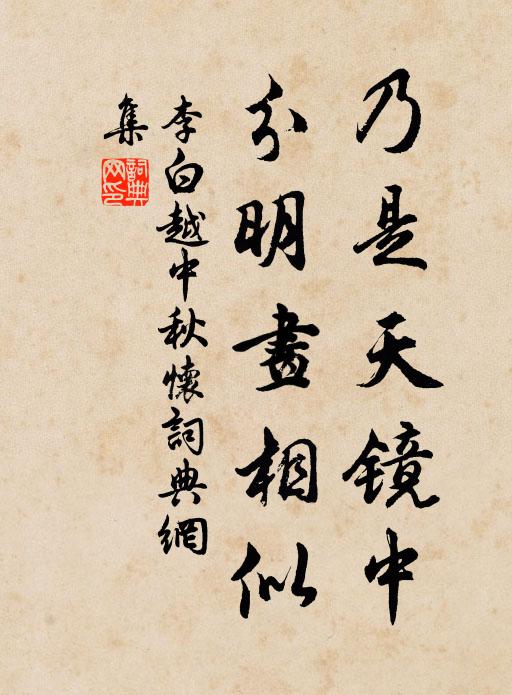 乃是天镜中
分明畫相似
李白越中秋懷詞典網
集
詞典網印